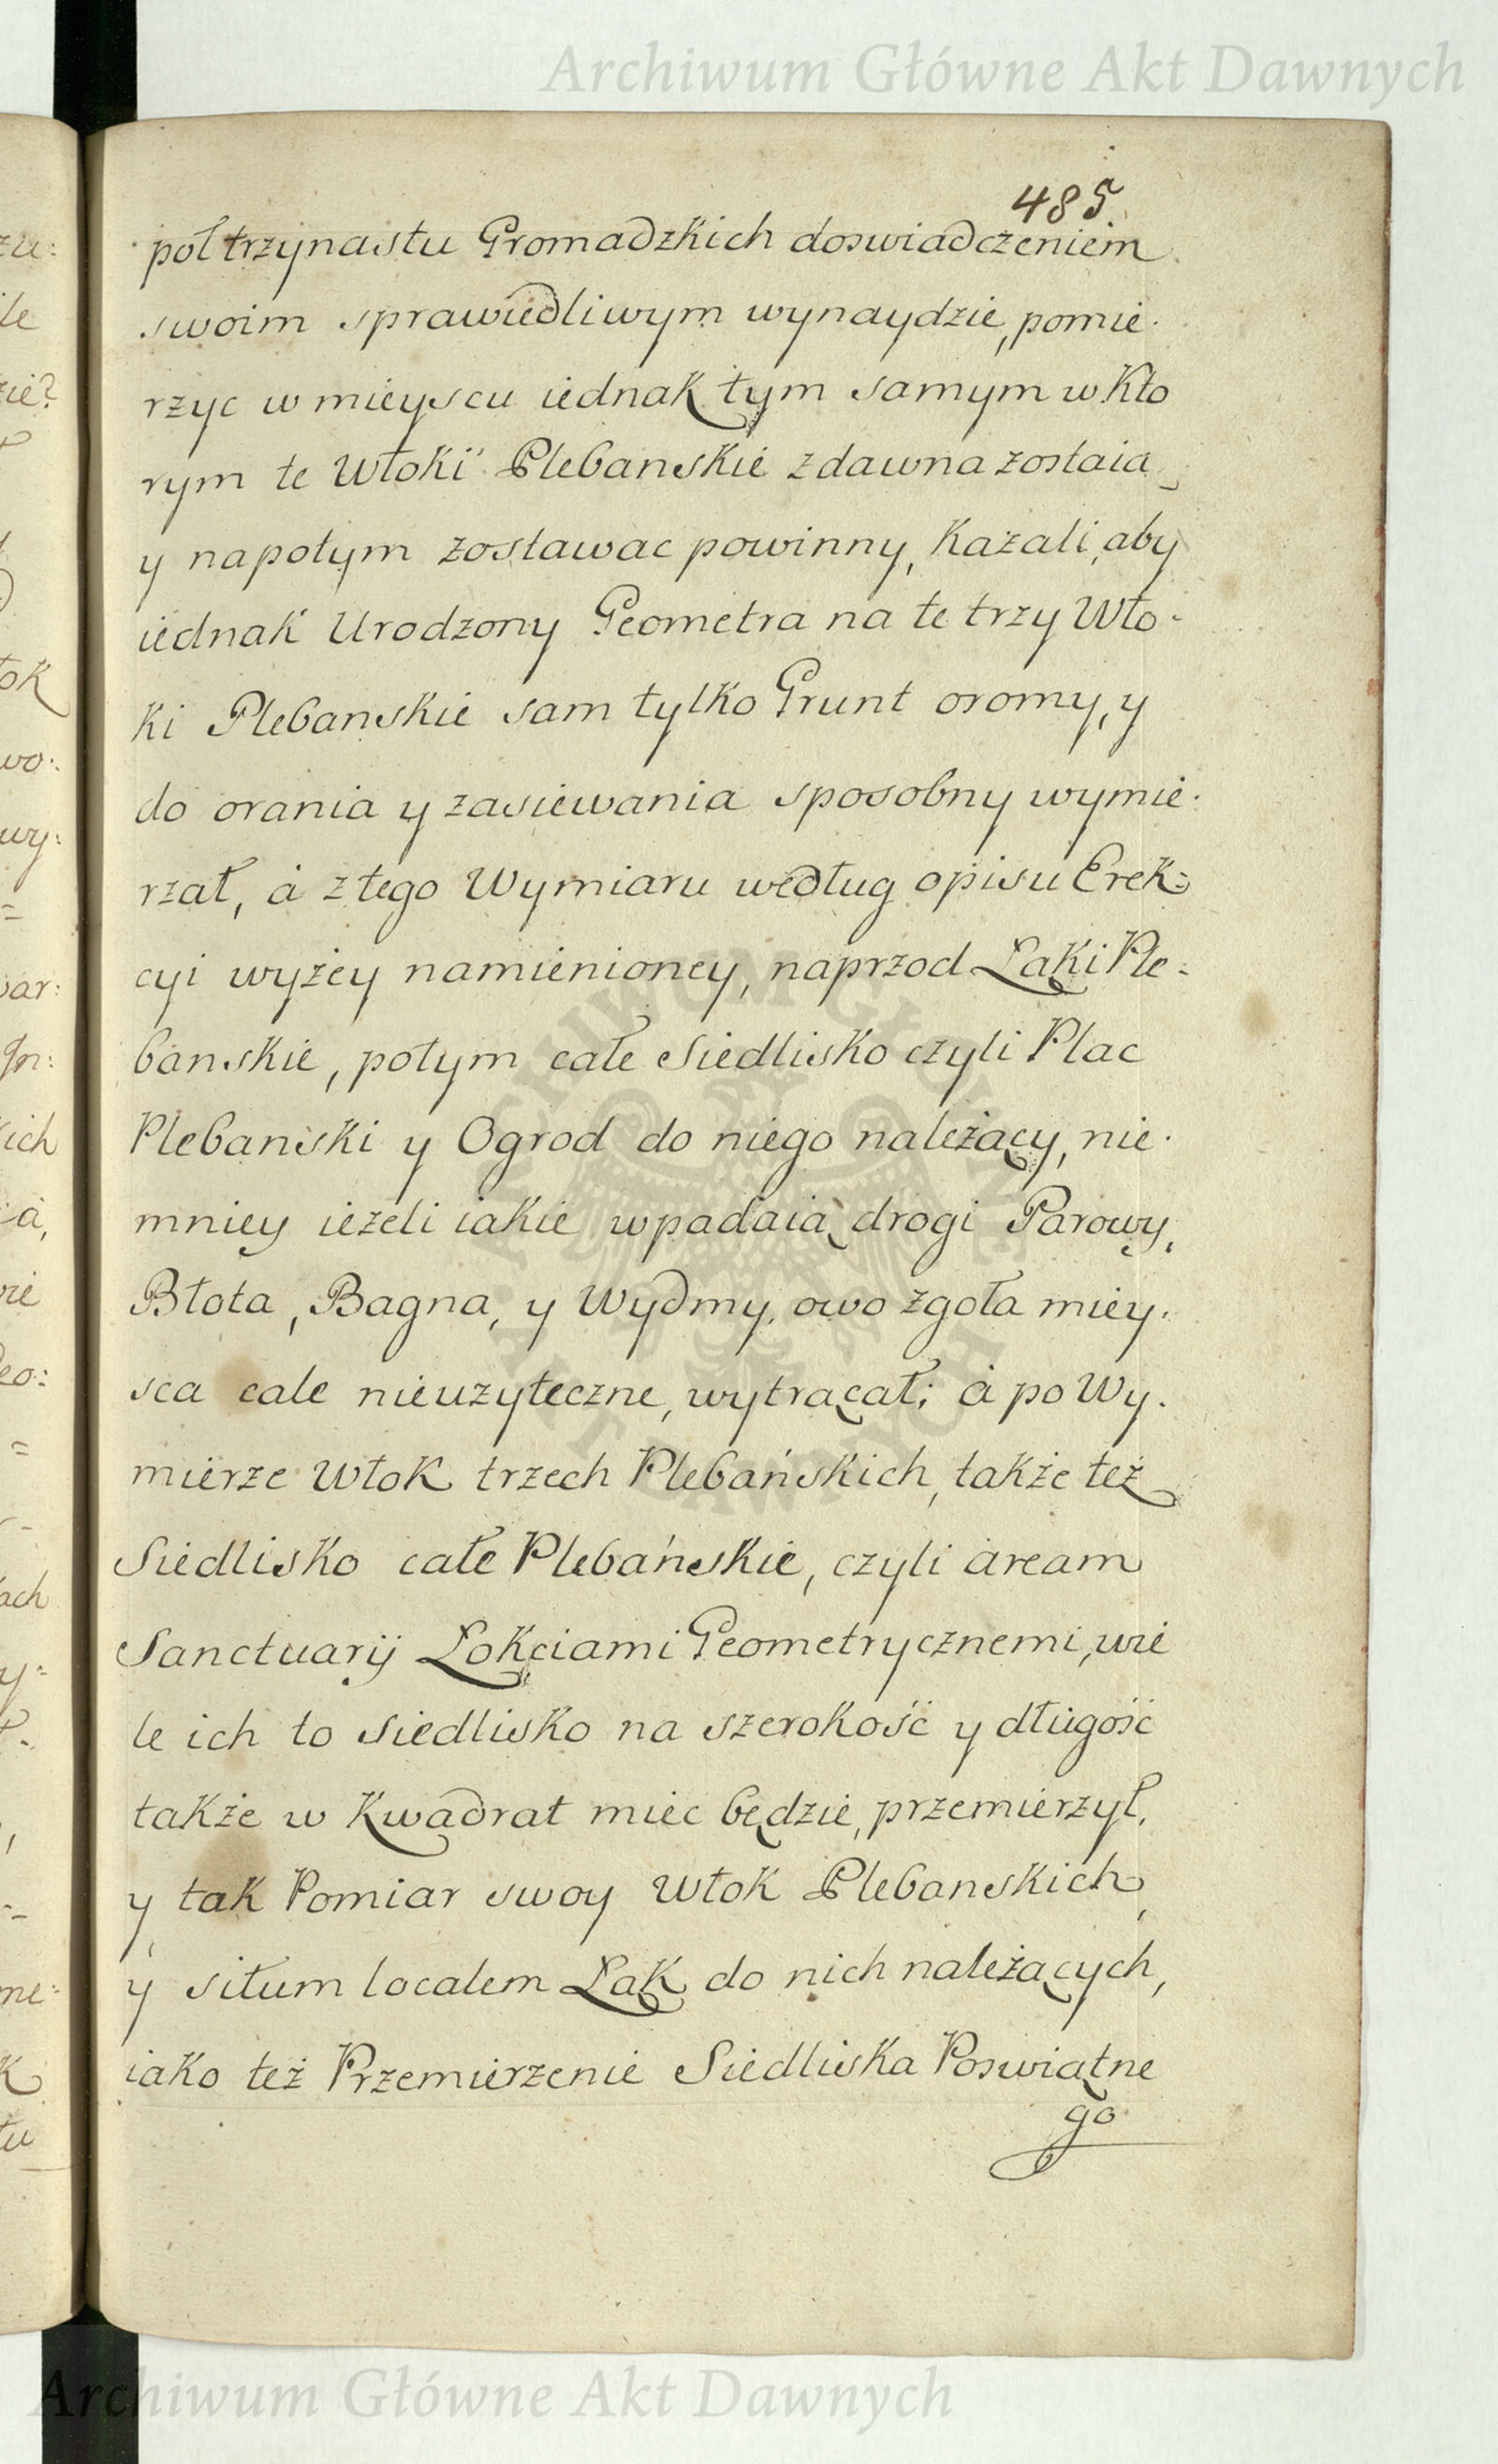 Archiwum Główne Akt Dawnych
485.
poł trzynastu Gromadzkich doswiadczeniem
swoim sprawiedliwym wynaydzie, pomie-
rzyc w mieyscu iednak tym samym w Kto
rym te Włoki Plebanskie zdawna zostaią
y napotym zostawac powinny, Kazali, aby
iednak Urodzony Geometra na te trzy Wło-
ki Plebanskie sam tylko Grunt oromy, y
do orania y zasiewania sposobny wymie-
rzał, á z tego Wymiaru według opisu Erek=
cyi wyżey namienioney, naprzod Łąki Ple-
banskie, potym całe Siedlisko czyli Plac
Plebański y Ogrod do niego należący, nie-
mniey ieżeli iakie wpadaią drogi Parowy,
Błota, Bagna, y Wydmy, owo zgoła miey-
sca cale nieuzyteczne, wytrącał; á po Wy-
mierze Włok trzech Plebańskich, także też
Siedlisko całe Plebańskie, czyli aream
Sanctuarij Łokciami Geometrycznemi, wie
le ich to Siedlisko na szerokość y długość
także w Kwadrat miec będzie, przemierzył,
y tak Pomiar swoy Włok Plebanskich,
y situm localem Łąk do nich należących,
iako też Przemierzenie Siedliska Poswiątne
go
Archiwum Główne Akt Dawnych